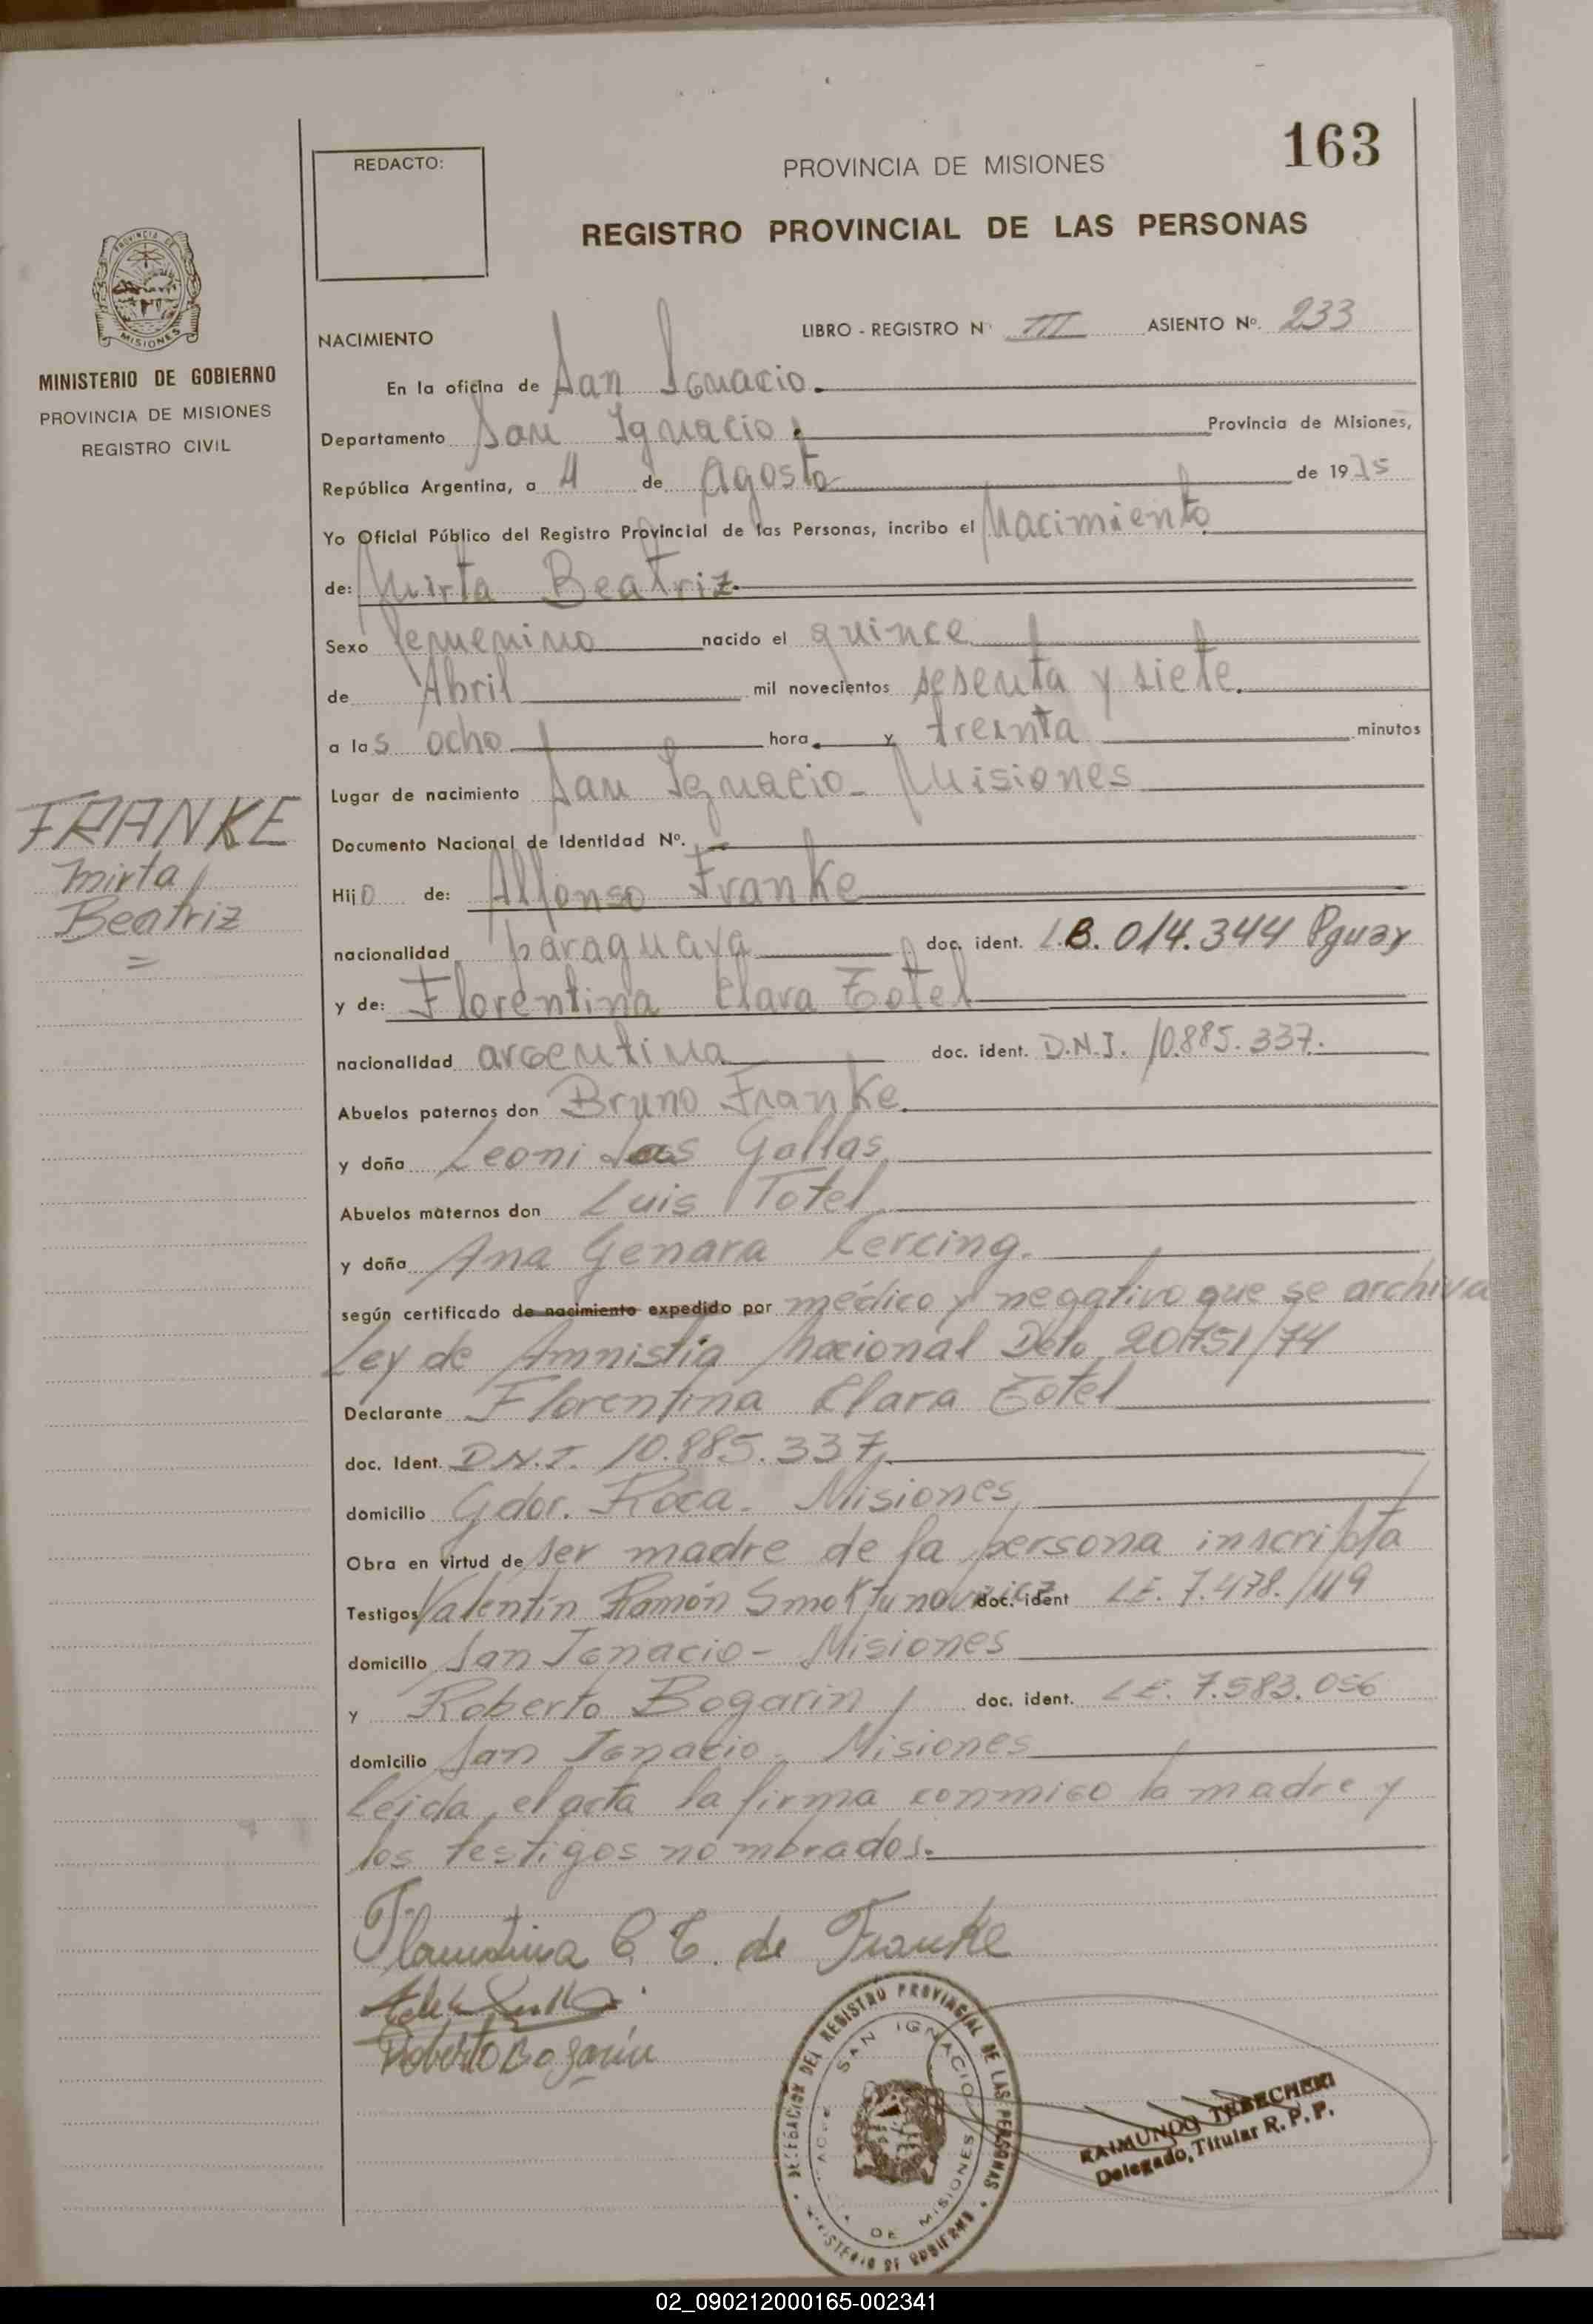 163
REDACTO:
PROVINCIA DE MISIONES
REGISTRO PROVINCIAL DE LAS PERSONAS
MISIONES
MINISTERIO DE GOBIERNO
PROVINCIA DE MISIONES
REGISTRO CIVIL
NACIMIENTO LIBRO - REGISTRO Nº III ASIENTO Nº. 233
En la oficina de San Ignacio.
Departamento San Ignacio. Provincia de Misiones,
República Argentina, a 4 de Agosto de 1975
Yo Oficial Público del Registro Provincial de las Personas, incribo el Nacimiento
de: Mirta Beatriz
Sexo femenino nacido el quince
de Abril mil novecientos sesenta y siete.
a las ocho hora y treinta minutos
Lugar de nacimiento San Ignacio - Misiones
Documento Nacional de Identidad Nº.
FRANKE
Mirta
Beatriz
=
Hijo de: Alfonso Franke
nacionalidad paraguaya doc. ident. I.B. 014.344 Pguay
y de: Florentina Clara Totel
nacionalidad argentina doc. ident. D.N.I. 10.885.337.
Abuelos paternos don Bruno Franke.
y doña Leonidas Gallas
Abuelos maternos don Luis Totel
y doña Ana Genara Cercing.
según certificado de nacimiento expedido por médico y negativo que se archiva
Ley de Amnistía Nacional Dcto 20751/74
Declarante Florentina Clara Totel
doc. Ident. D.N.I. 10.885.337.
domicilio Gdor. Roca. Misiones
Obra en virtud de ser madre de la persona inscripta
Testigos Valentín Ramón Smoktunovicz doc. ident L.E. 7.478.119
domicilio San Ignacio - Misiones
y Roberto Bogarin doc. ident. L.E. 7.583.056
domicilio San Ignacio. Misiones
Leída el acta la firma conmigo la madre y
los testigos nombrados.
Florentina C. T. de Franke
Roberto Bogarin
DELEGACION DEL REGISTRO PROVINCIAL DE LAS PERSONAS
SAN IGNACIO
DE MISIONES
MINISTERIO DE GOBIERNO
RAIMUNDO TEBECHERI
Delegado, Titular R. P. P.
02_090212000165-002341